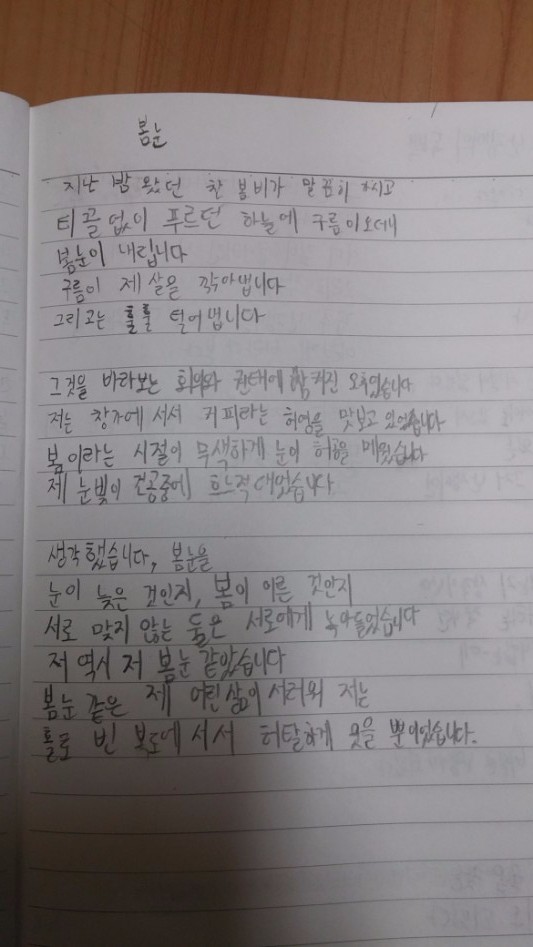 봄눈
지난 밤 왔던 찬 봄비가 말끔히 가시고
티끌 없이 푸르던 하늘에 구름이 오더니
봄눈이 내립니다
구름이 제 살을 깎아냅니다
그리고는 훌훌 털어냅니다
그것을 바라보는 회의와 권태에 잠겨진 오후였습니다
저는 창가에 서서 커피라는 허영을 맛보고 있었습니다
봄이라는 시절이 무색하게 눈이 허공을 메웠습니다
제 눈빛이 건공중에 흐느적대었습니다
생각했습니다, 봄눈을
눈이 늦은 것인지, 봄이 이른 것인지
서로 맞지 않는 둘은 서로에게 녹아들었습니다
저 역시 저 봄눈 같았습니다
봄눈 같은 제 어린 삶이 서러워 저는
홀로 빈 복도에 서서 허탈하게 웃을 뿐이었습니다.